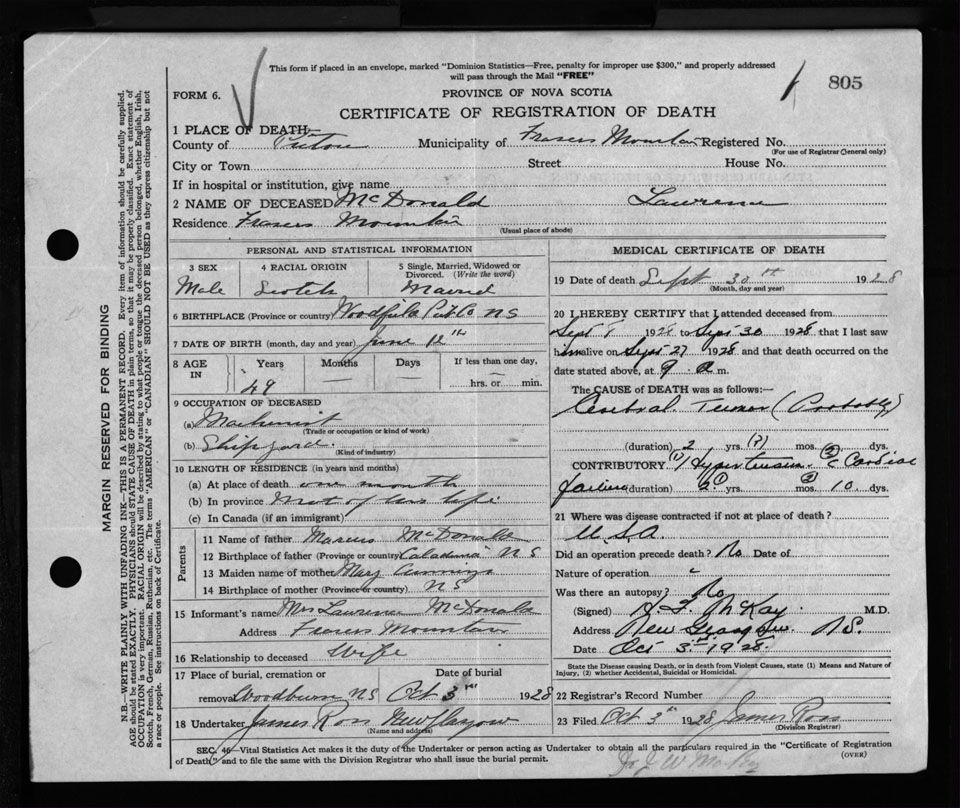 This form if placed in an envelope, marked "Dominion Statistics—Free, penalty for improper use $300," and properly addressed
will pass through the Mail "FREE"
805
FORM 6.
PROVINCE OF NOVA SCOTIA
CERTIFICATE OF REGISTRATION OF DEATH
1 PLACE OF DEATH:
County of Pictou Municipality of Frasers Mountain Registered No.
(For use of Registrar General only)
City or Town Street House No.
If in hospital or institution, give name
2 NAME OF DECEASED McDonald Lawrence
Residence Frasers Mountain
(Usual place of abode)
PERSONAL AND STATISTICAL INFORMATION
3 SEX 4 RACIAL ORIGIN 5 Single, Married, Widowed or Divorced. (Write the word)
Male Scotch Married
6 BIRTHPLACE (Province or country) Pict Co NS
7 DATE OF BIRTH (month, day and year) June 12th
8 AGE IN Years Months Days If less than one day,
49 — — hrs. or min.
9 OCCUPATION OF DECEASED
(a) Machinist
(Trade or occupation or kind of work)
(b) Shipyard.
(Kind of industry)
10 LENGTH OF RESIDENCE (in years and months)
(a) At place of death one month
(b) In province Most of his life
(c) In Canada (if an immigrant)
Parents
11 Name of father Marcus McDonald
12 Birthplace of father (Province or country) NS
13 Maiden name of mother Mary Cummings
14 Birthplace of mother (Province or country) NS
15 Informant's name Mrs Lawrence McDonald
Address Frasers Mountain
16 Relationship to deceased Wife
17 Place of burial, cremation or Date of burial
removal Woodburn NS Oct 3rd 1928
18 Undertaker James Ross New Glasgow
(Name and address)
MEDICAL CERTIFICATE OF DEATH
19 Date of death Sept 30th 1928
(Month, day and year)
20 I HEREBY CERTIFY that I attended deceased from
Sept 1 1928 to Sept 30 1928 that I last saw
him alive on Sept 27 1928 and that death occurred on the
date stated above, at 9 a m.
The CAUSE of DEATH was as follows:
Cerebral Tumor (Probably)
(duration) 2 yrs. (?) mos. dys.
CONTRIBUTORY (1) Hypertension (2) Cardiac
failure (duration) 2 (1) yrs. (2) mos. 10 dys.
21 Where was disease contracted if not at place of death?
U.S.A.
Did an operation precede death? No Date of
Nature of operation
Was there an autopsy? No
(Signed) McKay M.D.
Address New Glasgow. N.S.
Date Oct 3rd 1928.
State the Disease causing Death, or in death from Violent Causes, state (1) Means and Nature of
Injury, (2) whether Accidental, Suicidal or Homicidal.
22 Registrar's Record Number
23 Filed Oct 3rd 1928 James Ross
(Division Registrar)
SEC. 46—Vital Statistics Act makes it the duty of the Undertaker or person acting as Undertaker to obtain all the particulars required in the "Certificate of Registration
of Death" and to file the same with the Division Registrar who shall issue the burial permit.
(OVER)
MARGIN RESERVED FOR BINDING
N.B.—WRITE PLAINLY WITH UNFADING INK—THIS IS A PERMANENT RECORD. Every item of information should be carefully supplied.
AGE should be stated EXACTLY. PHYSICIANS should STATE CAUSE OF DEATH in plain terms, so that it may be properly classified. Exact statement of
OCCUPATION is very important. RACIAL ORIGIN will be described by stating to what people or tongue the deceased person belonged, whether English, Irish,
Scotch, French, German, Russian, Ruthenian, etc. The terms "AMERICAN" or "CANADIAN" SHOULD NOT BE USED as they express citizenship but not
a race or people. See instructions on back of Certificate.